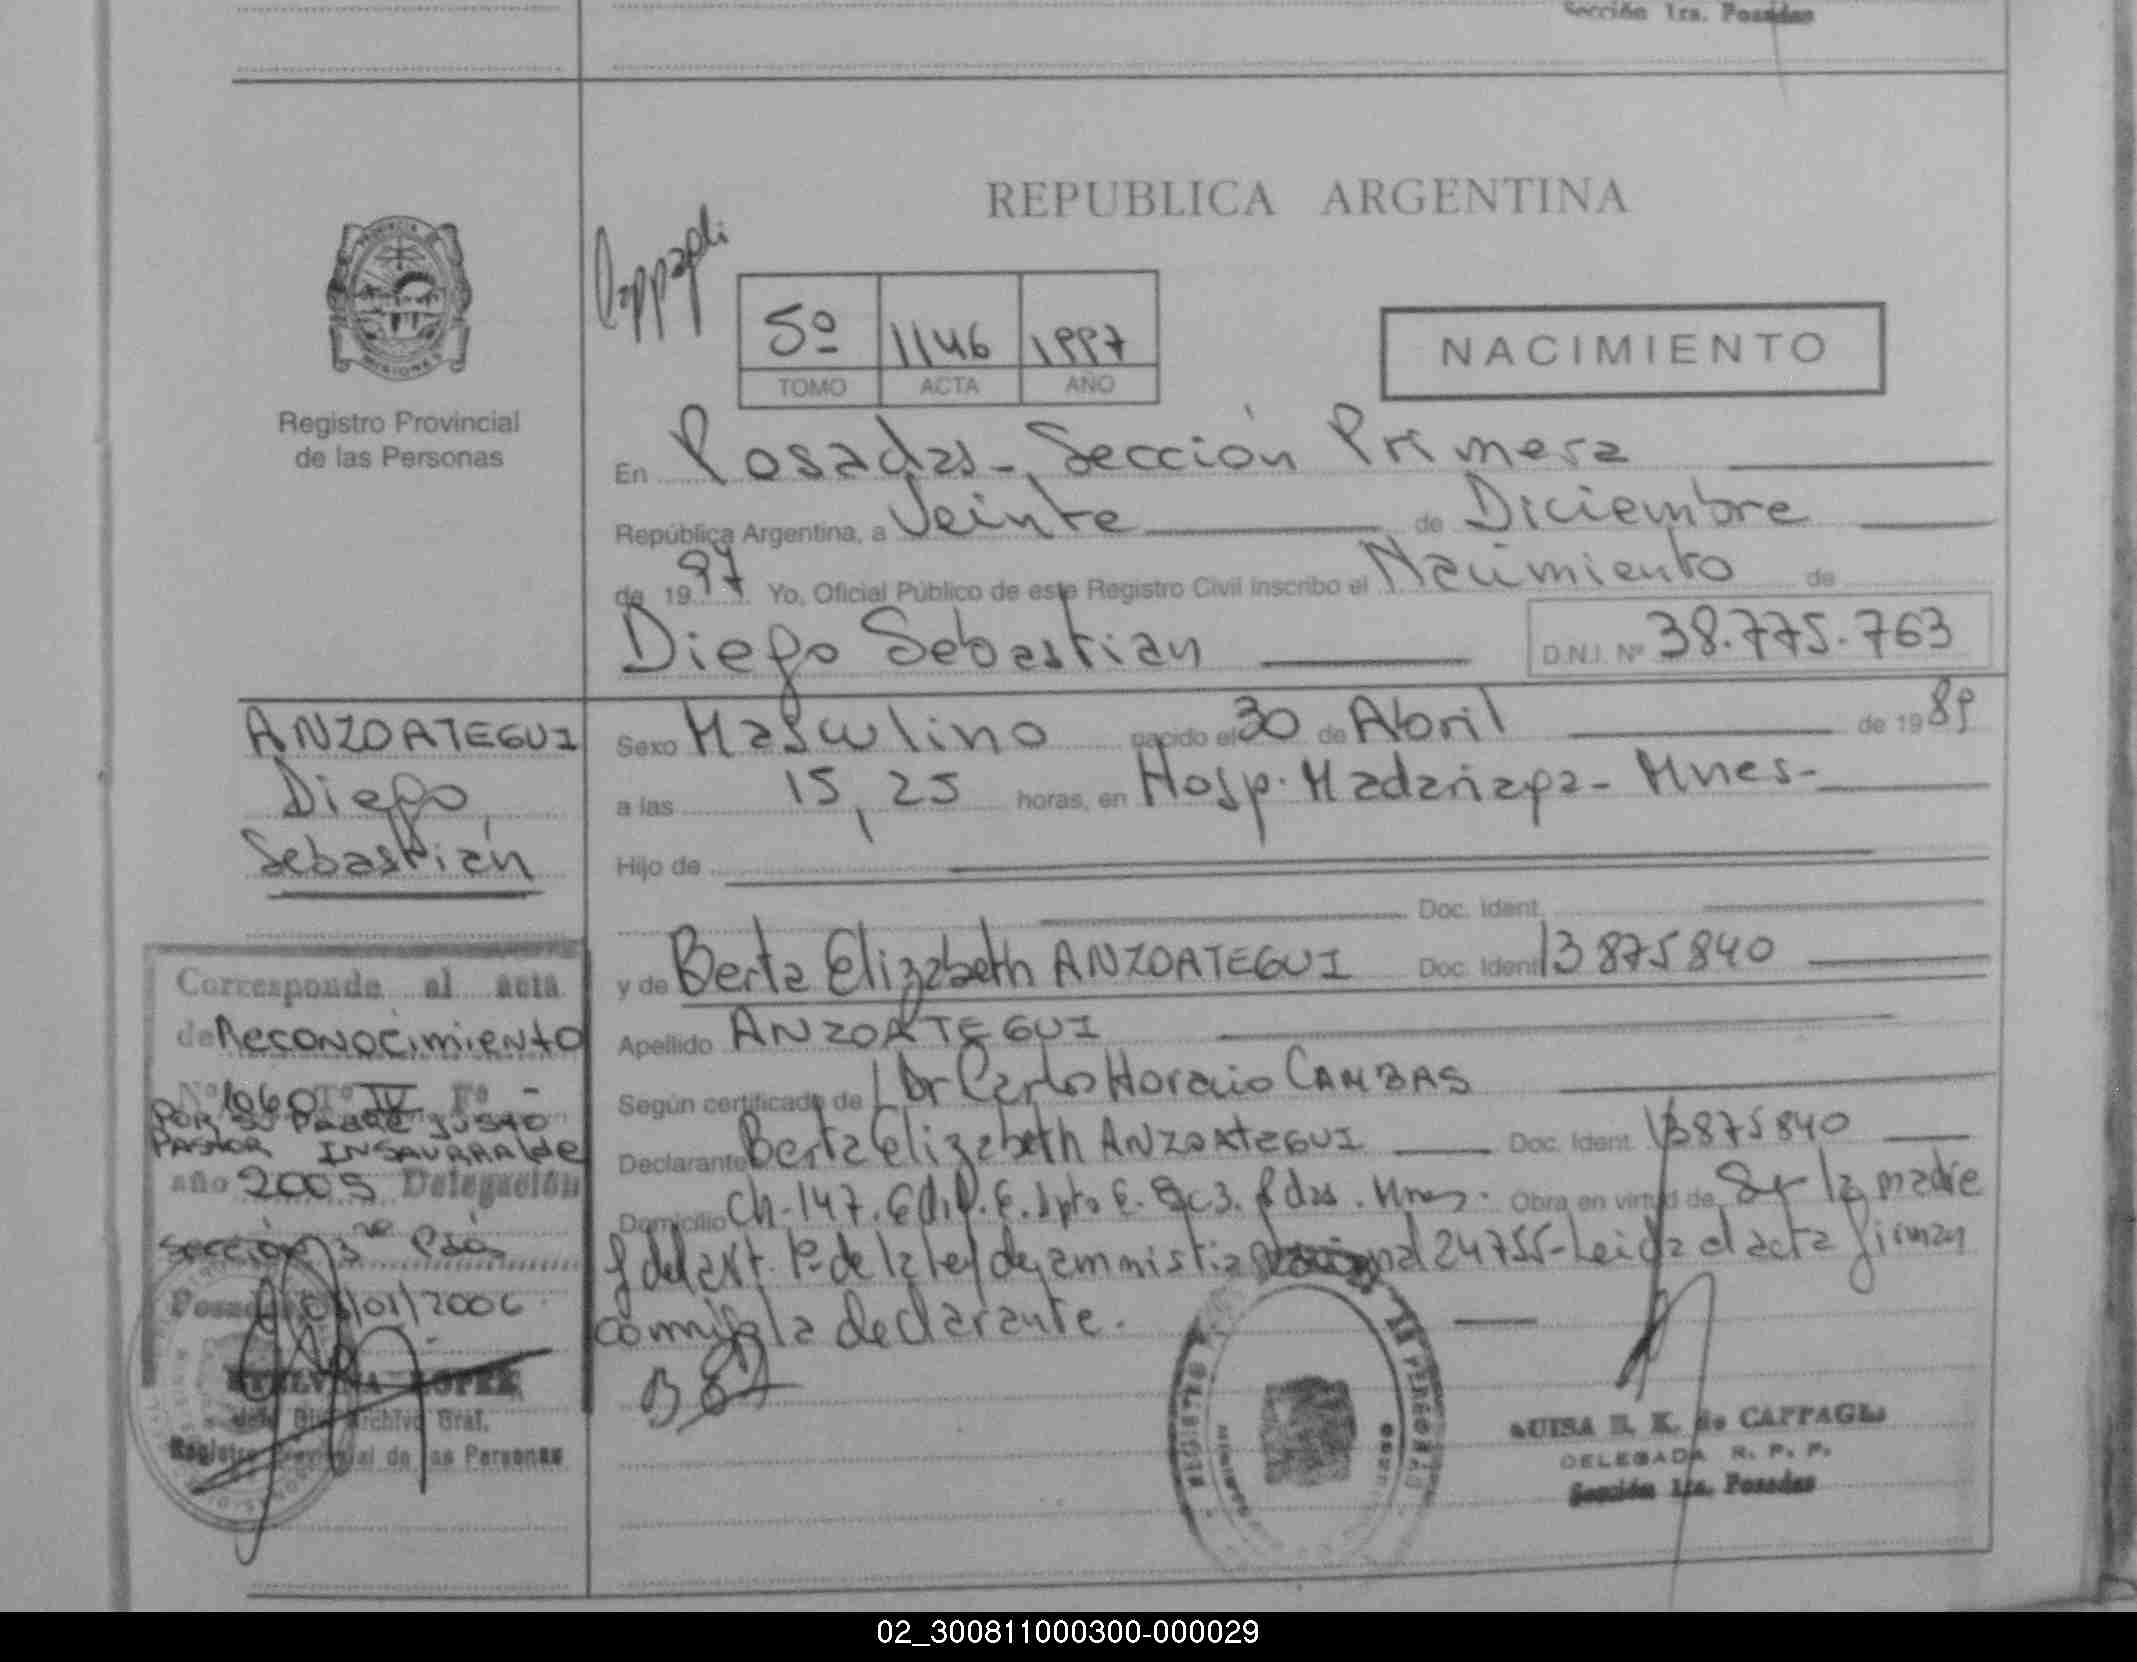 Sección 1ra. Posadas
REPUBLICA ARGENTINA
Registro Provincial
de las Personas
5º 1146 1997
TOMO ACTA AÑO
NACIMIENTO
En Posadas - Sección Primera
República Argentina, a Veinte de Diciembre
de 1997 Yo, Oficial Público de este Registro Civil inscribo el Nacimiento de
Diego Sebastian D.N.I. Nº 38.775.763
ANZOATEGUI
Diego
Sebastián
Sexo Masculino nacido el 30 de Abril de 1989
a las 15,25 horas, en Hosp. Madariaga - Mnes-
Hijo de
Doc. Ident.
y de Berta Elizabeth ANZOATEGUI Doc. Ident 13875840
Apellido ANZOATEGUI
Según certificado de Dr Carlos Horacio CAMBAS
Declarante Berta Elizabeth ANZOATEGUI Doc. Ident. 13875840
Domicilio Ch. 147. Edif. E. Dpto E. Mnes. Obra en virtud de la madre
y del art. 1º de la ley de ammistia 24755 - Leida el acta firman
conmigo la declarante.
Corresponde al acta
de Reconocimiento
Nº 1060 Tº IV Fº -
POR SU PADRE JUSTO
PASTOR INSAURRALDE
año 2005 Delegación
Sección 3ra Pdas
Posadas /01/2006
Archivo Gral.
Registro Provincial de las Personas
LUISA E. K. de CAPPAGLI
DELEGADA R. P. P.
Sección 1ra. Posadas
02_300811000300-000029